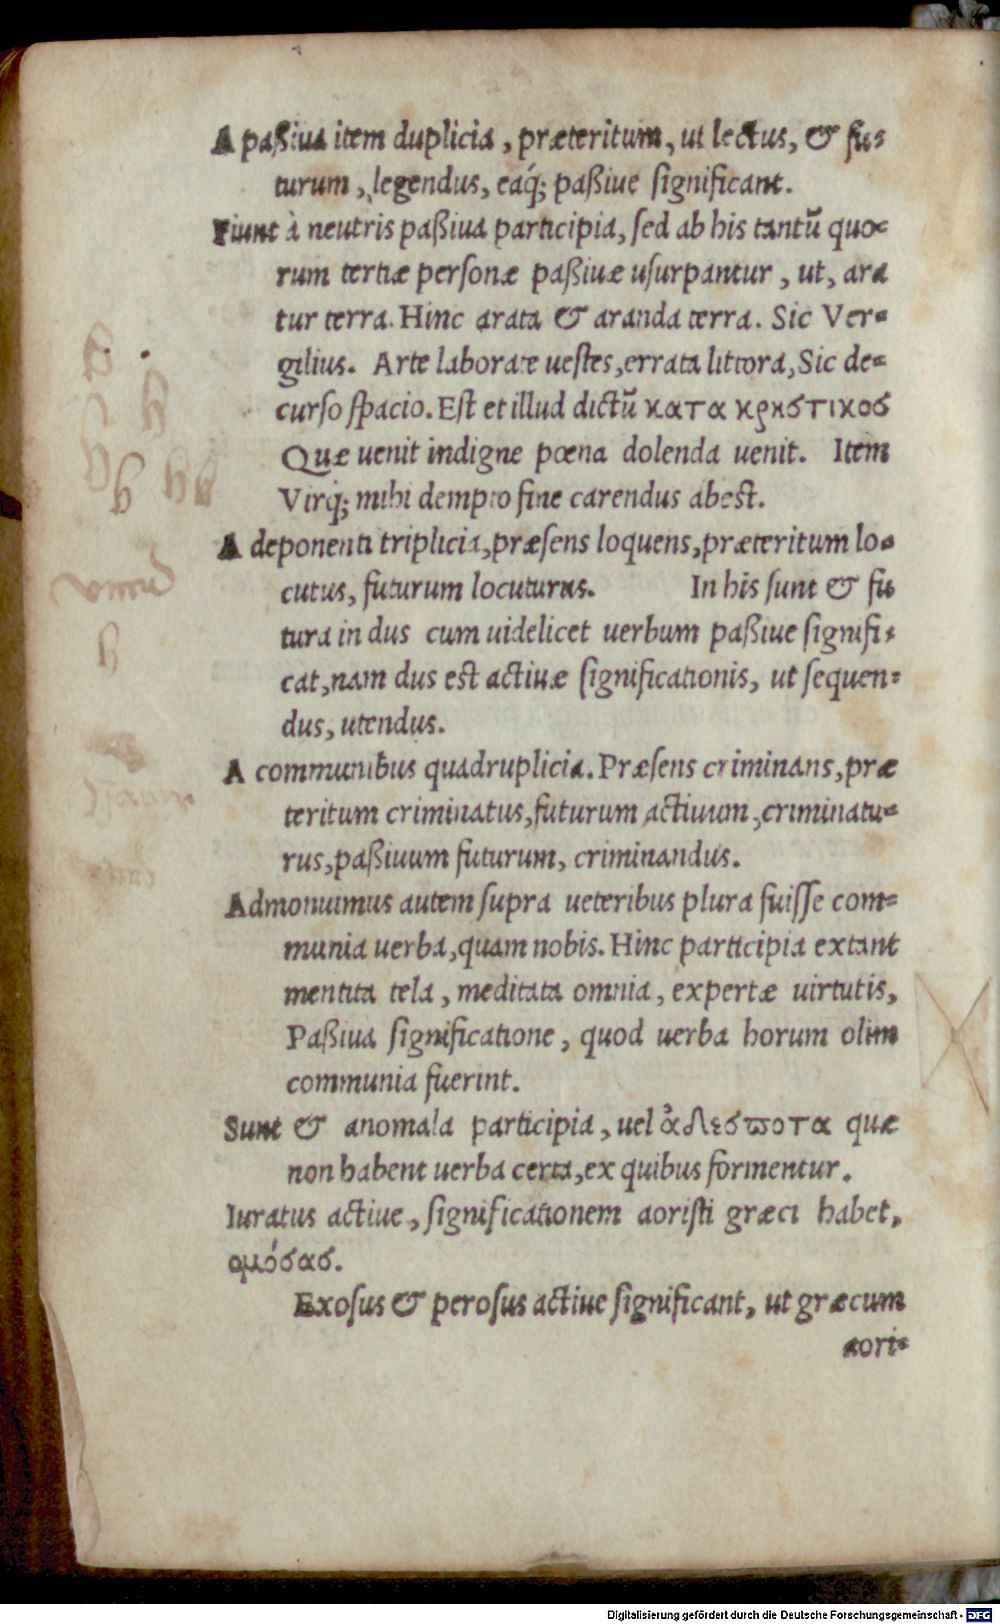 A paßiua item duplicia, præteritum, ut lectus, & fu-
turum, legendus, eaq́; paßiue significant.
Fiunt à neutris paßiua participia, sed ab his tantũ quo-
rum tertiæ personæ paßiuæ usurpantur, ut, ara
tur terra. Hinc arata & aranda terra. Sic Ver-
gilius. Arte laboratæ uestes, errata littora, Sic de-
curso spacio. Est et illud dictũ κατα κρηστικος
Quæ uenit indigne pœna dolenda uenit. Item
Virq́; mihi dempto fine carendus abest.
A deponenti triplicia, præsens loquens, præteritum lo-
cutus, futurum locuturus. In his sunt & fu
tura in dus cum uidelicet uerbum paßiue signifi-
cat, nam dus est actiuæ significationis, ut sequen-
dus, utendus.
A communibus quadruplicia. Præsens criminans, præ
teritum criminatus, futurum actiuum, criminatu-
rus, paßiuum futurum, criminandus.
Admonuimus autem supra ueteribus plura fuisse com-
munia uerba, quam nobis. Hinc participia extant
mentita tela, meditata omnia, expertæ uirtutis,
Paßiua significatione, quod uerba horum olim
communia fuerint.
Sunt & anomala participia, uel ἀδεσποτα quæ
non habent uerba certa, ex quibus formentur.
Iuratus actiue, significationem aoristi græci habet,
ομόσας.
Exosus & perosus actiue significant, ut græcum
aori-
Digitalisierung gefördert durch die Deutsche Forschungsgemeinschaft - DFG